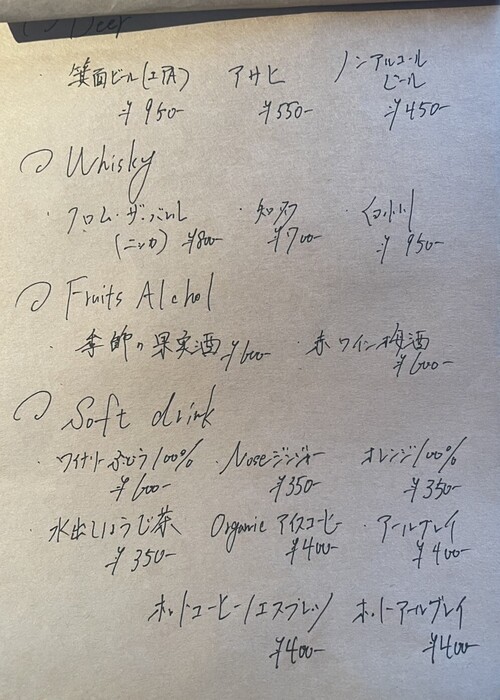 Beer
・箕面ビール(エIPA) アサヒ ノンアルコール
ビール
¥950- ¥550- ¥450-
Whisky
・フロム・ザ・バレル ・知多 ・白州
(ニッカ) ¥800- ¥700- ¥950-
Fruits Alchol
・季節の果実酒 ¥600- ・赤ワイン梅酒
¥600-
Soft drink
・ワイナリーぶどう100% ・Noseジンジャー オレンジ100%
¥600- ¥350- ¥350-
・水出しほうじ茶 Organic アイスコーヒー ・アールグレイ
¥350- ¥400- ¥400-
ホットコーヒー/エスプレッソ ホットアールグレイ
¥400- ¥400-